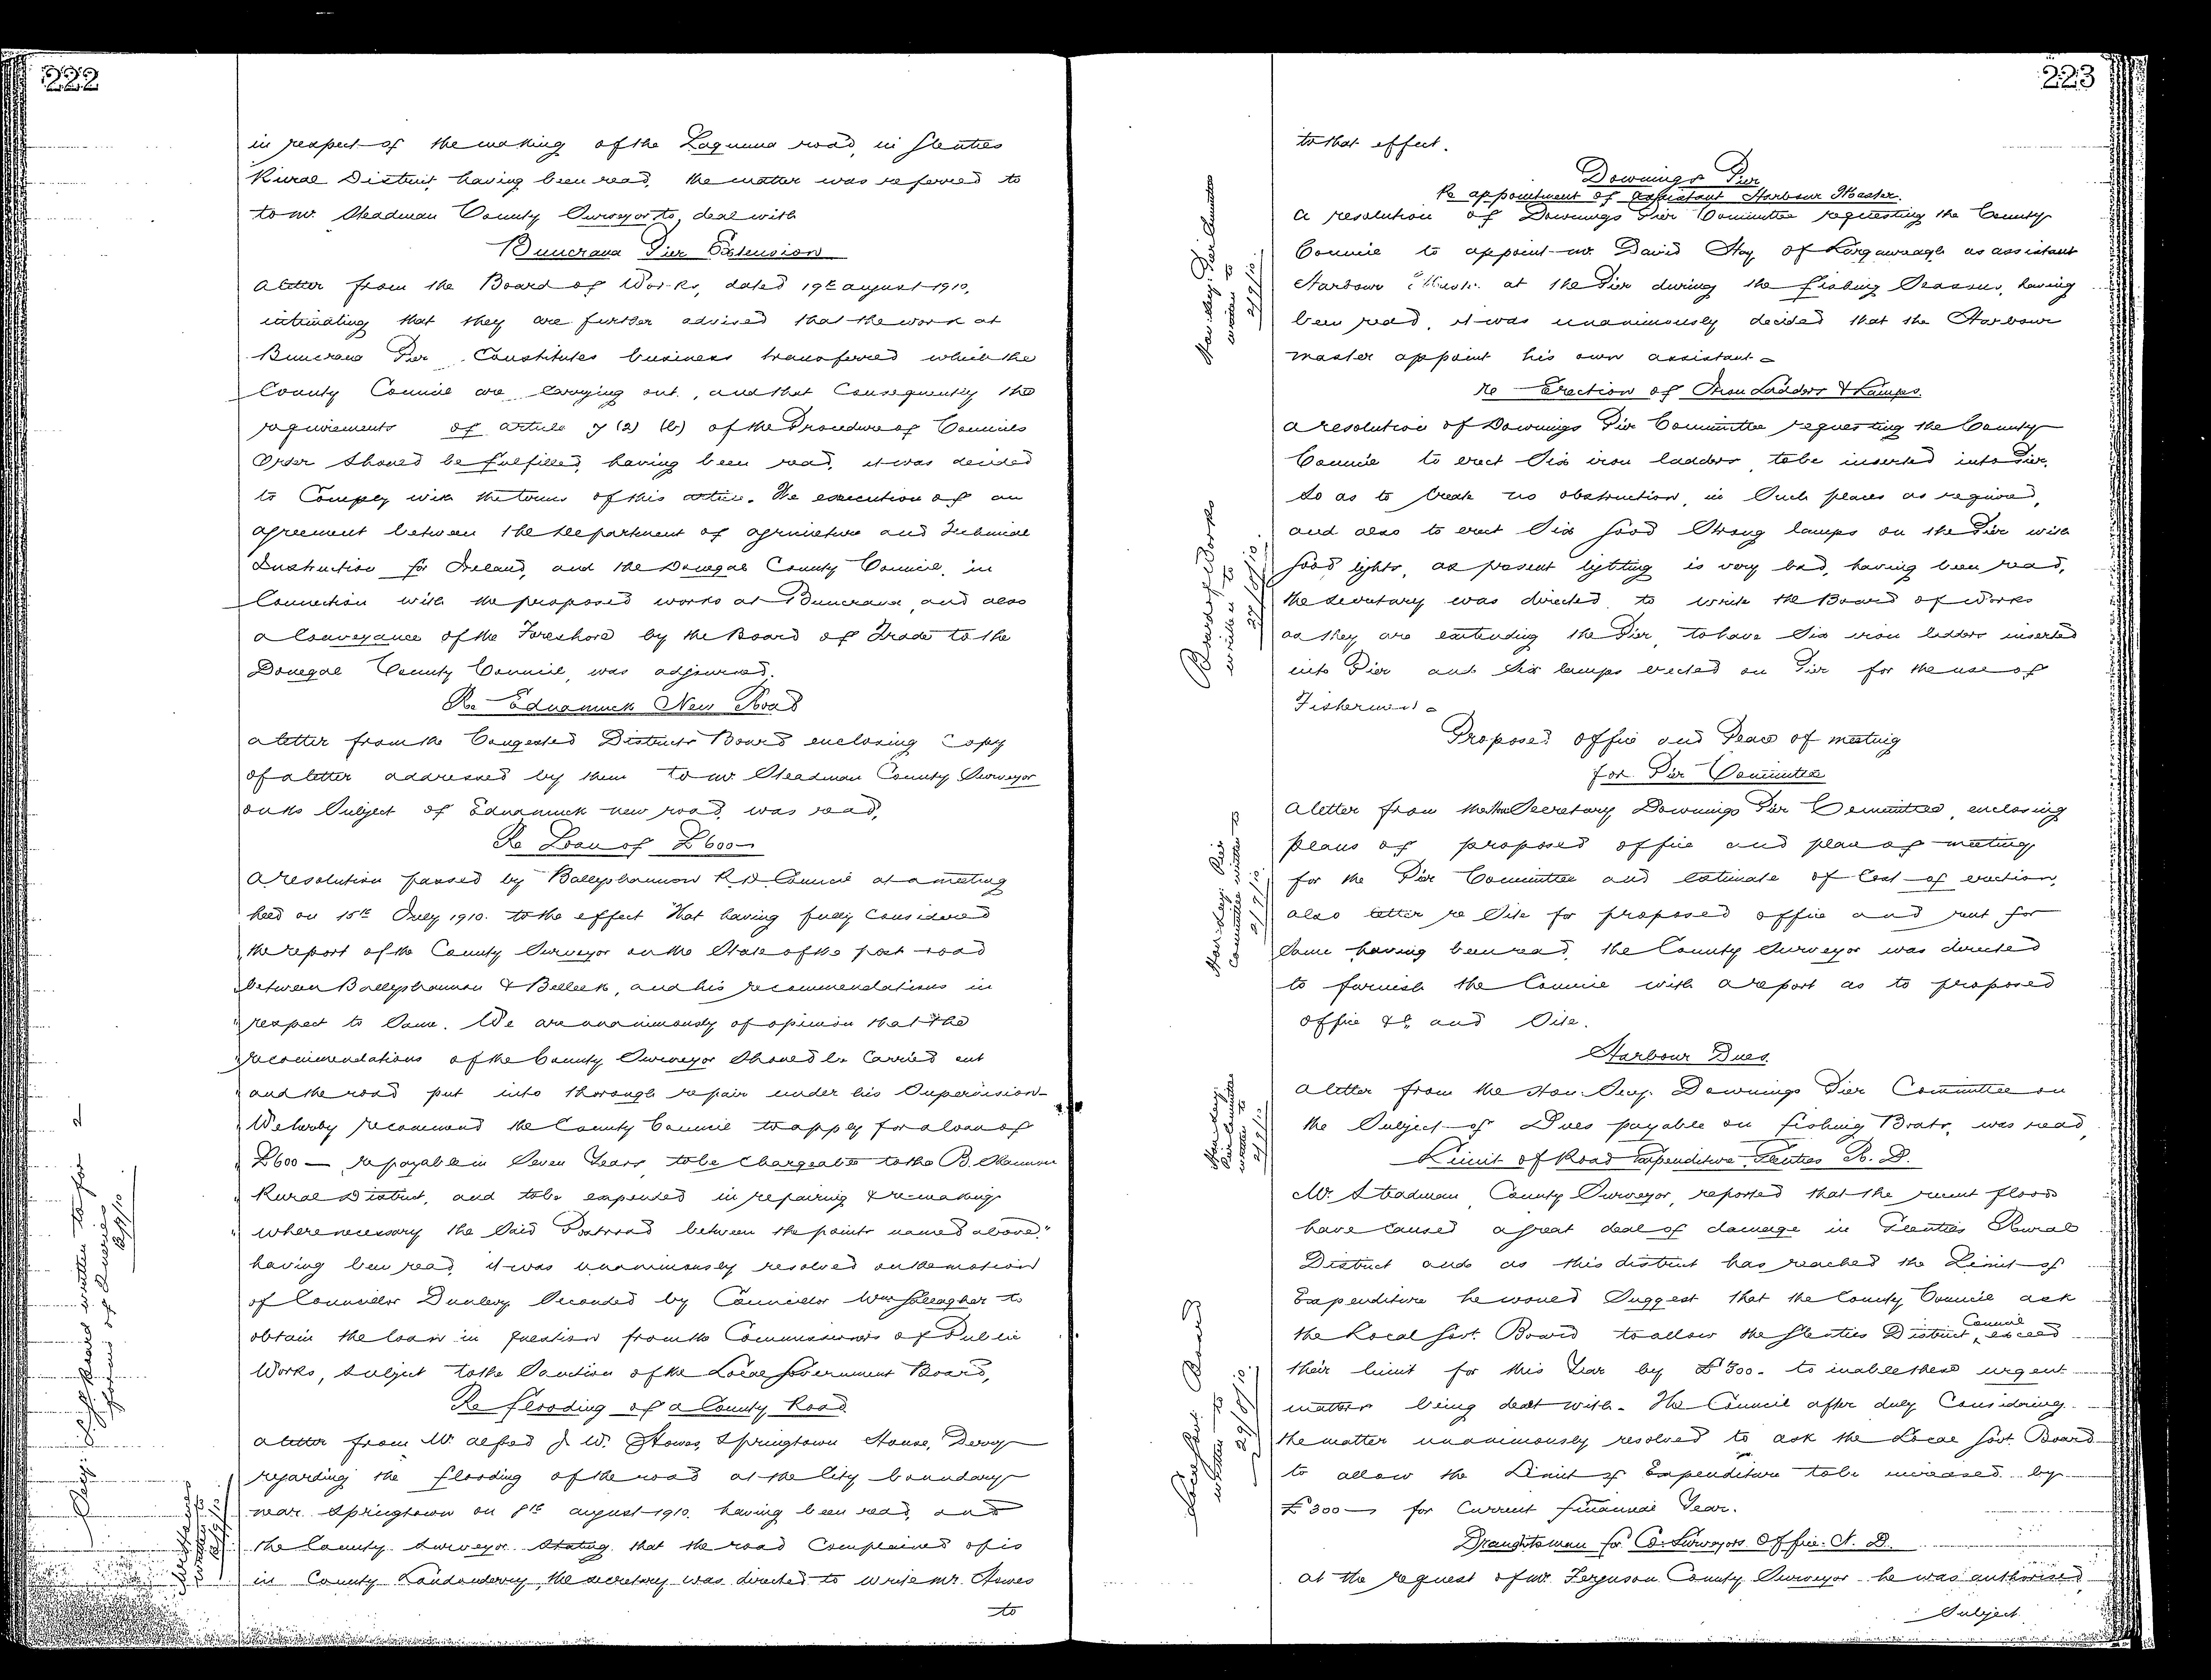 222
in respect of the making of the Laguna road, in Glenties
Rural District having been read, the matter was referred to
to Mr. Steadman County Surveyor to, deal with
Buncrana Pier Extension
a letter from the Board of Works, dated 19th august 1910,
intimating that they are further advised that the work at
Buncrana Pier Constitutes business transferred which the
County Council are Carrying out, and that Consequently the
requirements of article 7 (2) (b) of the Procedure of Councils
Order Should be fulfilled, having been read, it was decided
to Comply with the terms of this article. The execution of an
agreement between the Department of agriculture and Technical
Instruction for Ireland, and the Donegal County Council, in
Connection with the proposed works at Buncrana, and also
a Conveyance of the Foreshore by the Board of Trade to the
Donegal County Council, was adjourned.
Re Ednamuck New Road
a letter from the Congested Districts Board enclosing Copy
of a letter addressed by them to Mr. Steadman County Surveyor
on the Subject of Ednamuck new road, was read,
Re Loan of £600-
a resolution passed by Ballyshannon R. D. Council at a meeting
held on 15th July 1910. to the effect "that having fully Considered
"the report of the County Surveyor on the State of the post road
"between Ballyshannon & Belleek, and his recommendations in
"respect to Same. We are unanimously of opinion that the
"recommendations of the County Surveyor Should be Carried out
"and the road put into thorough repair under his Supervision-
"We hereby recommend the County Council to apply for a loan of
"£600 — repayable in Seven Years, to be Chargeable to the B. Shannon
"Rural District, and to be expended in repairing & remaking
"where necessary the Said Postroad between the points named above."
having been read, it was unanimously resolved on the motion
of Councillor Dunlevy Seconded by Councillor Wm Gallagher to
obtain the loan in question from the Commissioners of Public
Works, Subject to the Sanction of the Local Government Board,
Secy. L. G. Board written to for
forms of Queries
2/9/10
Re flooding of a County Road
a letter from Mr. Alfred J. W. Hawes, Springtown House, Derry
regarding the flooding of the road at the City boundary
near Springtown on 8th august 1910. having been read, and
the County Surveyor Stating that the road Complained of is
in County Londonderry, the secretary was directed to write Mr. Hawes
Mr Hawes
written to
2/9/10
to
223
to that effect.
Downings Pier
Re appointment of assistant Harbour Master.
a resolution of Downings Pier Committee requesting the County
Council to appoint Mr. David Hay of as assistant
Harbour Master at the Pier during the fishing Season, having
been read, it was unanimously decided that the Harbour
master appoint his own assistant-
Hon. Secy. Pier Committee
written to
2/9/10.
Re Erection of Iron Ladders & Lamps.
a resolution of Downings Pier Committee requesting the County
Council to erect Six iron ladders, to be inserted into Pier,
So as to Create no obstruction, in Such places as required,
and also to erect Six good Strong lamps on the Pier with
good lights, as present lighting is very bad, having been read,
the secretary was directed, to write the Board of Works
as they are extending the Pier, to have Six iron ladders inserted
into Pier and Six lamps erected on Pier for the use of
Fishermen-
Board of Works
written to
27/8/10.
Proposed Office and Place of meeting
for Pier Committee
a letter from the Hon Secretary Downings Pier Committee, enclosing
plans of proposed office and place of meeting
for the Pier Committee and Estimate of Cost of erection,
also letter re Site for proposed office and rent for
Same having been read, the County Surveyor was directed
to furnish the Council with a report as to proposed
office &c and Site.
Hon. Secy. Pier
Committee written to
2/9/10.
Harbour Dues.
a letter from the Hon. Secy. Downings Pier Committee on
the Subject of Dues payable on fishing Boats, was read,
Hon Secy.
Pier Committee
written to
2/9/10
Limit of Road Expenditure, Glenties R. D.
Mr. Steadman County Surveyor, reported that the recent floods
have Caused a great deal of damage in Glenties Rural
District and as this district has reached the Limit of
Expenditure he would Suggest that the County Council ask
the Local Govt. Board to allow the Glenties District Council exceed
their limit for this Year by £300- to inable these urgent
matters being dealt with. The Council after duly Considering
the matter unanimously resolved to ask the Local Govt. Board
to allow the Limit of Expenditure to be increased by
£300 — for Current financial Year.
Local Govt. Board
written to
29/8/10.
Draughtsman for Co. Surveyors Office. N. D.
at the request of Mr. Ferguson County Surveyor he was authorised
Subject